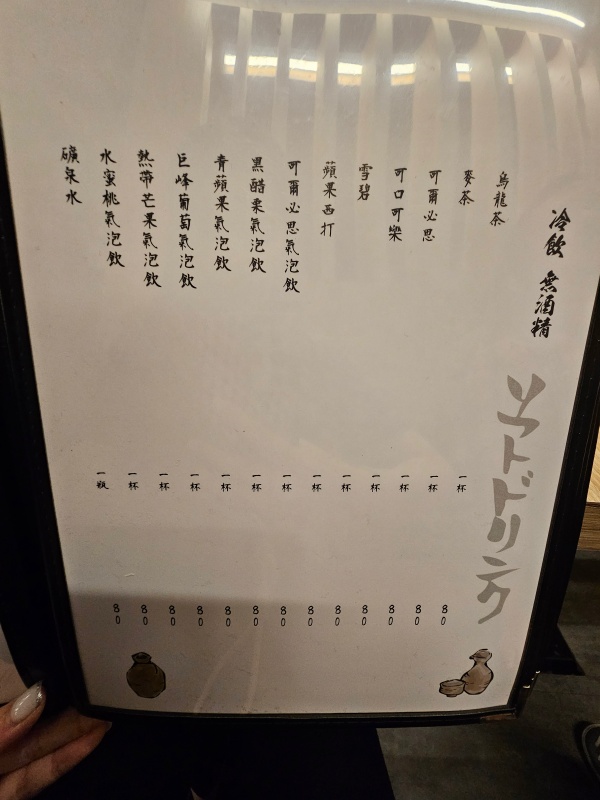 冷飲 無酒精
ソフトドリンク
烏龍茶 一杯 80
麥茶 一杯 80
可爾必思 一杯 80
可口可樂 一杯 80
雪碧 一杯 80
蘋果西打 一杯 80
可爾必思氣泡飲 一杯 80
黑醋栗氣泡飲 一杯 80
青蘋果氣泡飲 一杯 80
巨峰葡萄氣泡飲 一杯 80
熱帶芒果氣泡飲 一杯 80
水蜜桃氣泡飲 一杯 80
礦泉水 一瓶 80